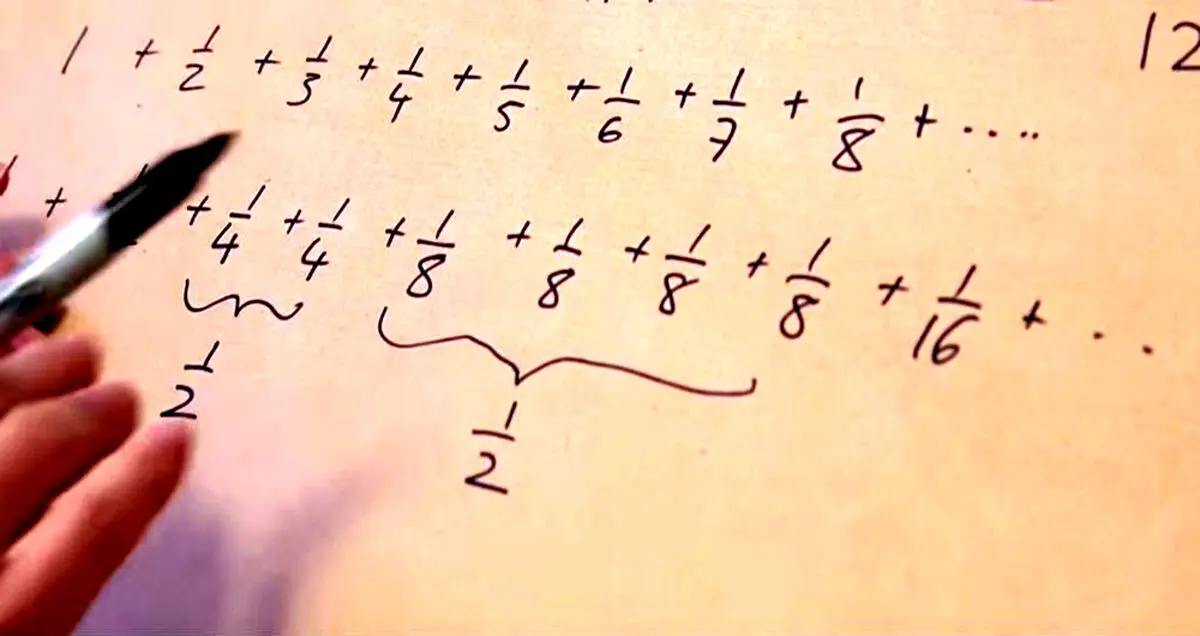 12
1 + 1/2 + 1/3 + 1/4 + 1/5 + 1/6 + 1/7 + 1/8 + ....
+ + 1/4 + 1/4 + 1/8 + 1/8 + 1/8 + 1/8 + 1/16 + . .
1/2 1/2